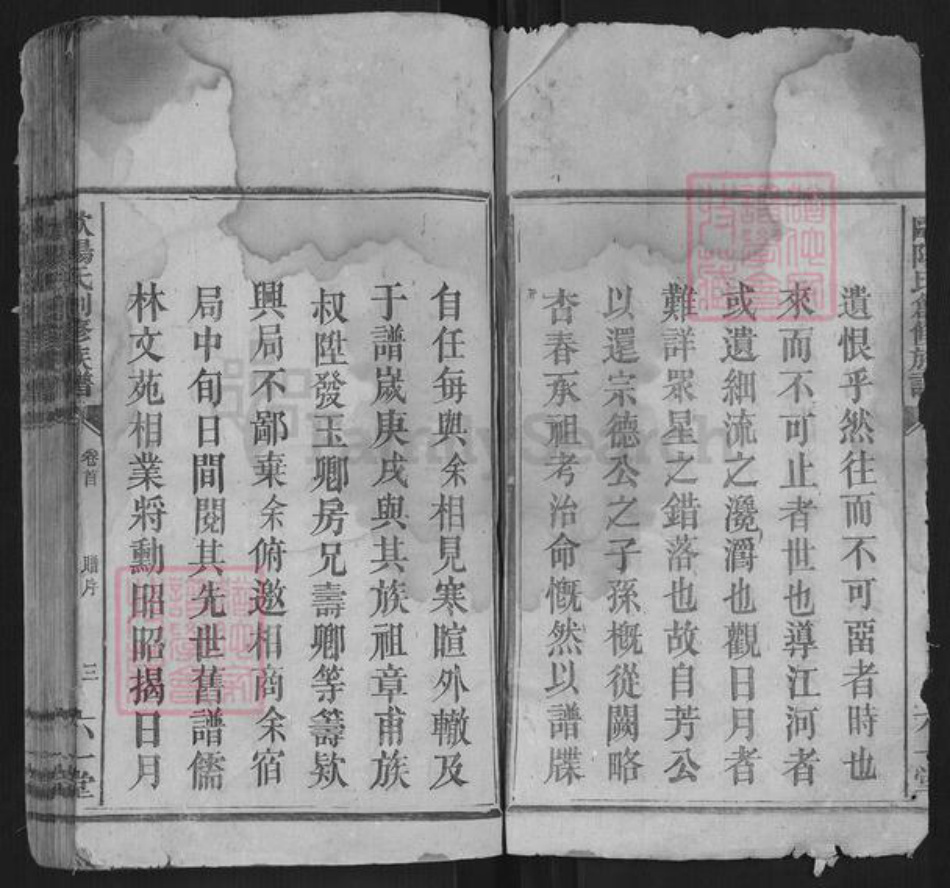 遺恨乎然往而不可畱者時也
來而不可止者世也導江河者
或遺細流之瀺灂也觀日月者
難詳眾星之錯落也故自芳公
以還宗德公之子孫概從闕略
杏春承祖考治命慨然以譜牒
自任每與余相見寒暄外轍及
于譜歲庚戌與其族祖章甫族
叔陞發玉卿房兄壽卿等籌欵
興局不鄙棄余俯邀相商余宿
局中旬日間閱其先世舊譜儒
林文苑相業將勳昭昭揭日月
歐陽氏創修族譜
卷首
三
六一堂
FamilySearch